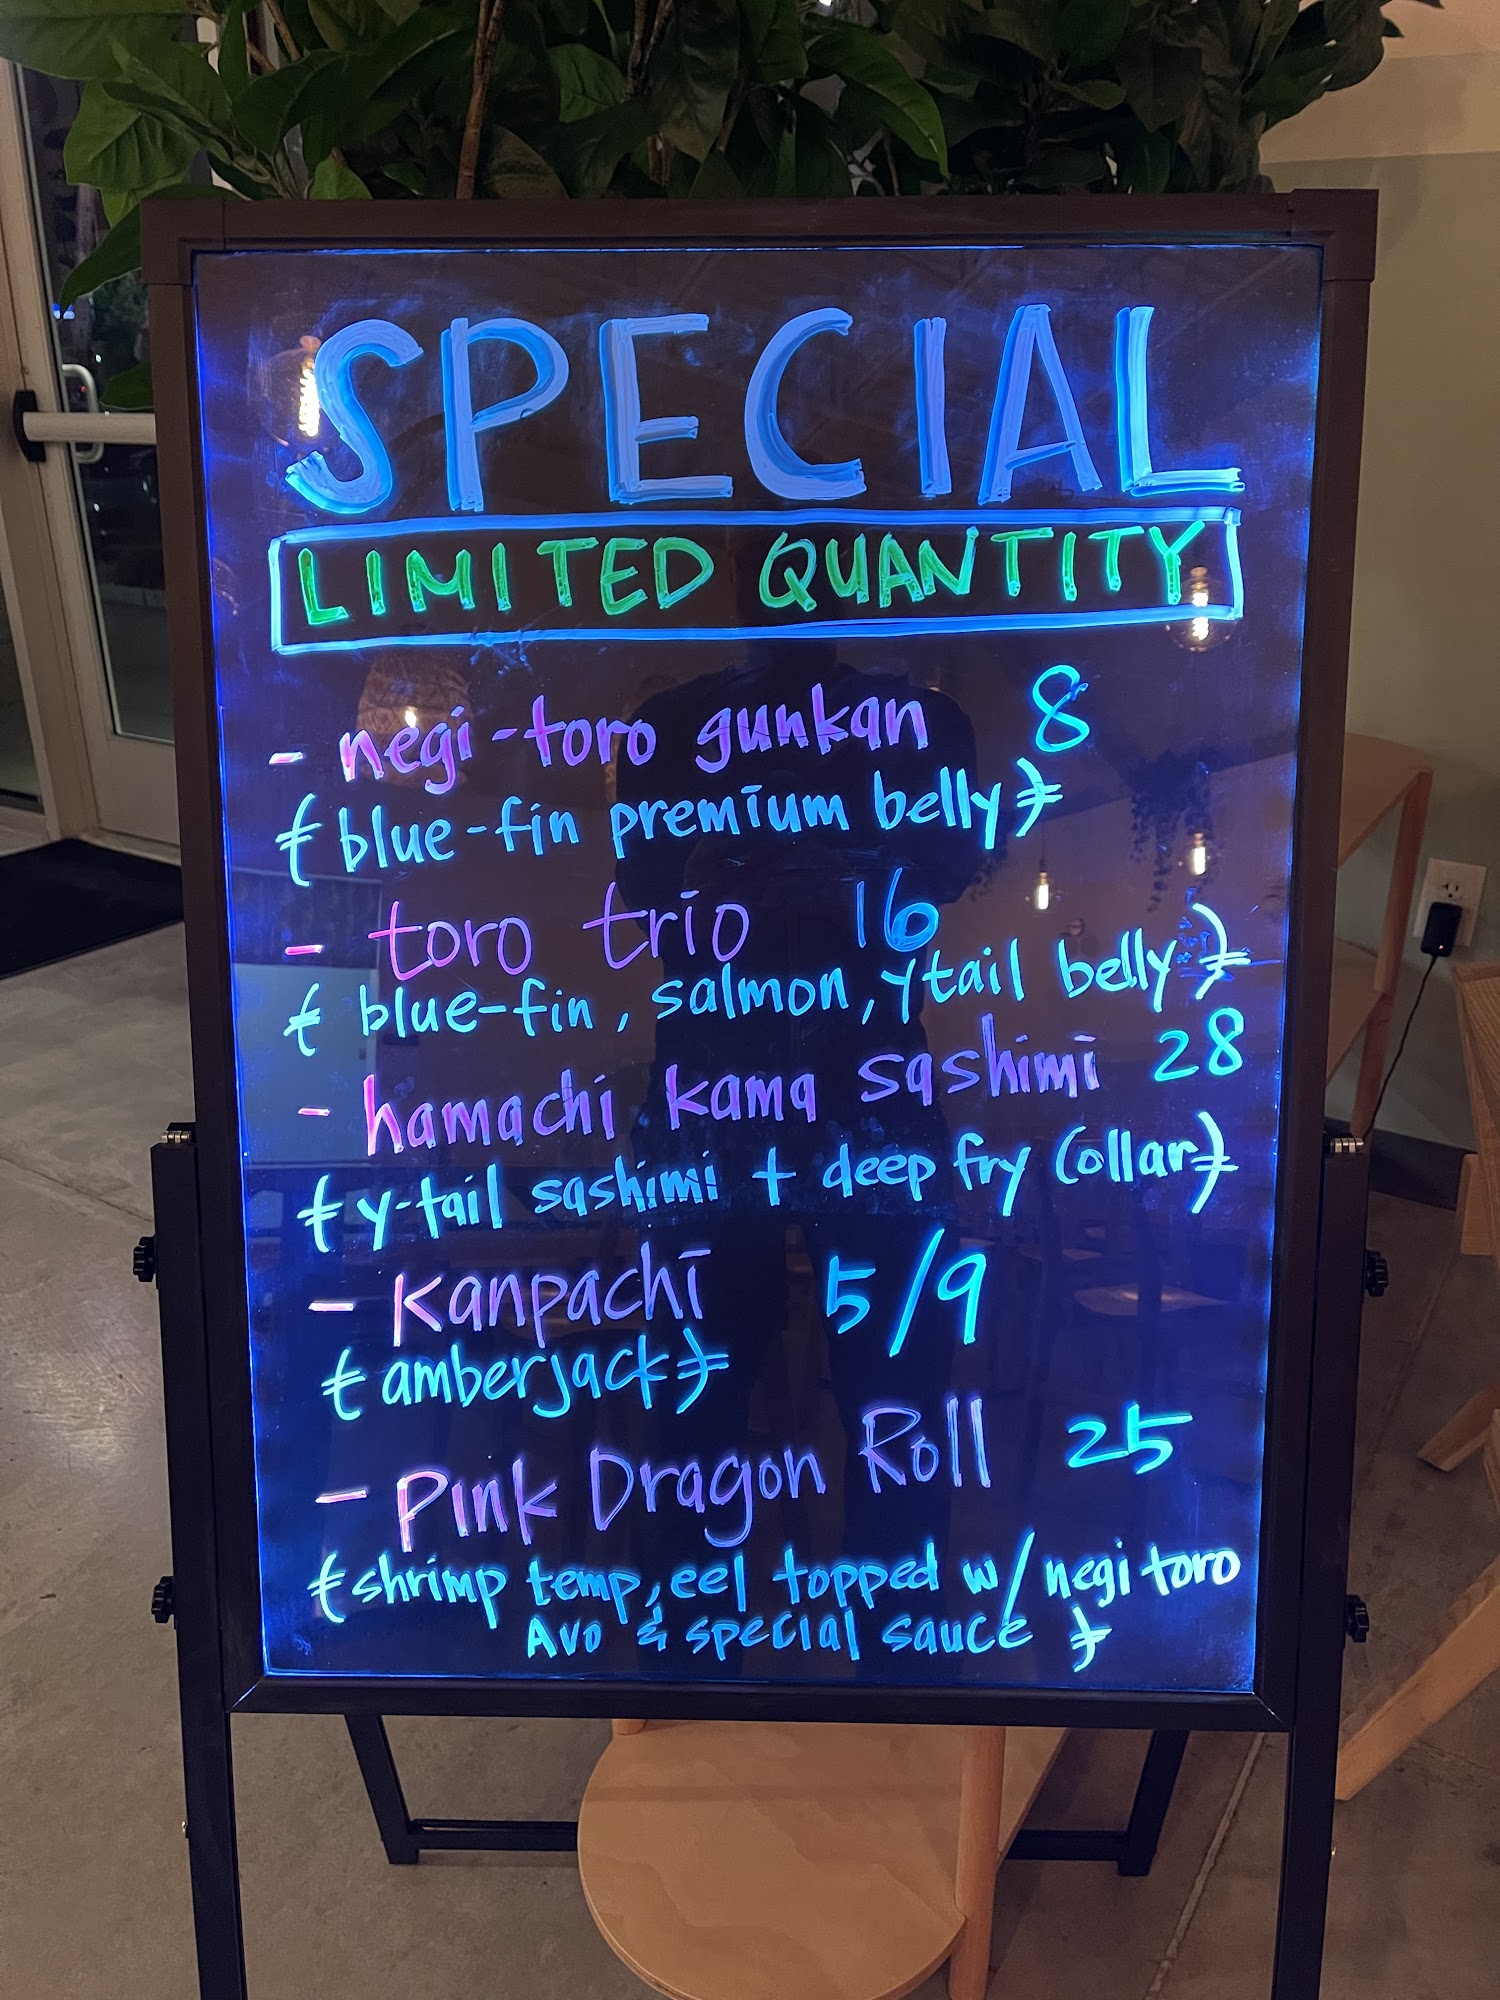 SPECIAL
LIMITED QUANTITY
- negi-toro gunkan 8
(blue-fin premium belly)
- toro trio 16
(blue-fin, salmon, ytail belly)
- hamachi kama sashimi 28
(y-tail sashimi + deep fry collar)
- Kanpachi 5/9
(amberjack)
- Pink Dragon Roll 25
(shrimp temp, eel topped w/ negi toro
Avo & special sauce)